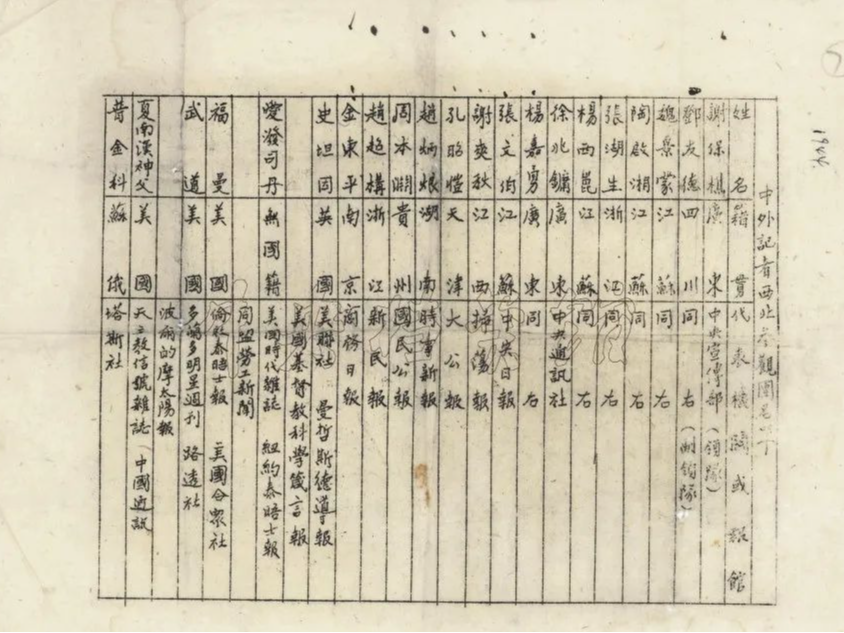 中外記者西北參觀團名單
姓名 籍貫 代表機關或報館
謝保樵 廣東 中央宣傳部（領隊）
鄧友德 四川 同右（副領隊）
魏景蒙 江 同右
陶啟湘 江蘇 同右
張湖生 浙江 同右
楊西崑 江蘇 同右
徐兆鏞 廣東 中央通訊社
楊嘉勇 廣東 同右
張文伯 江蘇 中央日報
謝爽秋 江西 掃蕩報
孔昭愷 天津 大公報
趙炳烺 湖南 時事新報
周本淵 貴州 國民公報
趙超構 浙江 新民報
金東平 南京 商務日報
史坦因 英國 美聯社 曼哲斯德導報
美國基督教科學箴言報
愛潑司丹 無國籍 美國時代雜誌 紐約泰晤士報
同盟勞工新聞
福曼 美國 倫敦泰晤士報 美國合眾社
武道 美國 多倫多明星週刊 路透社
波爾的摩太陽報
夏南漢神父 美國 天主教信號雜誌 中國通訊
普金科 蘇俄 塔斯社
1944